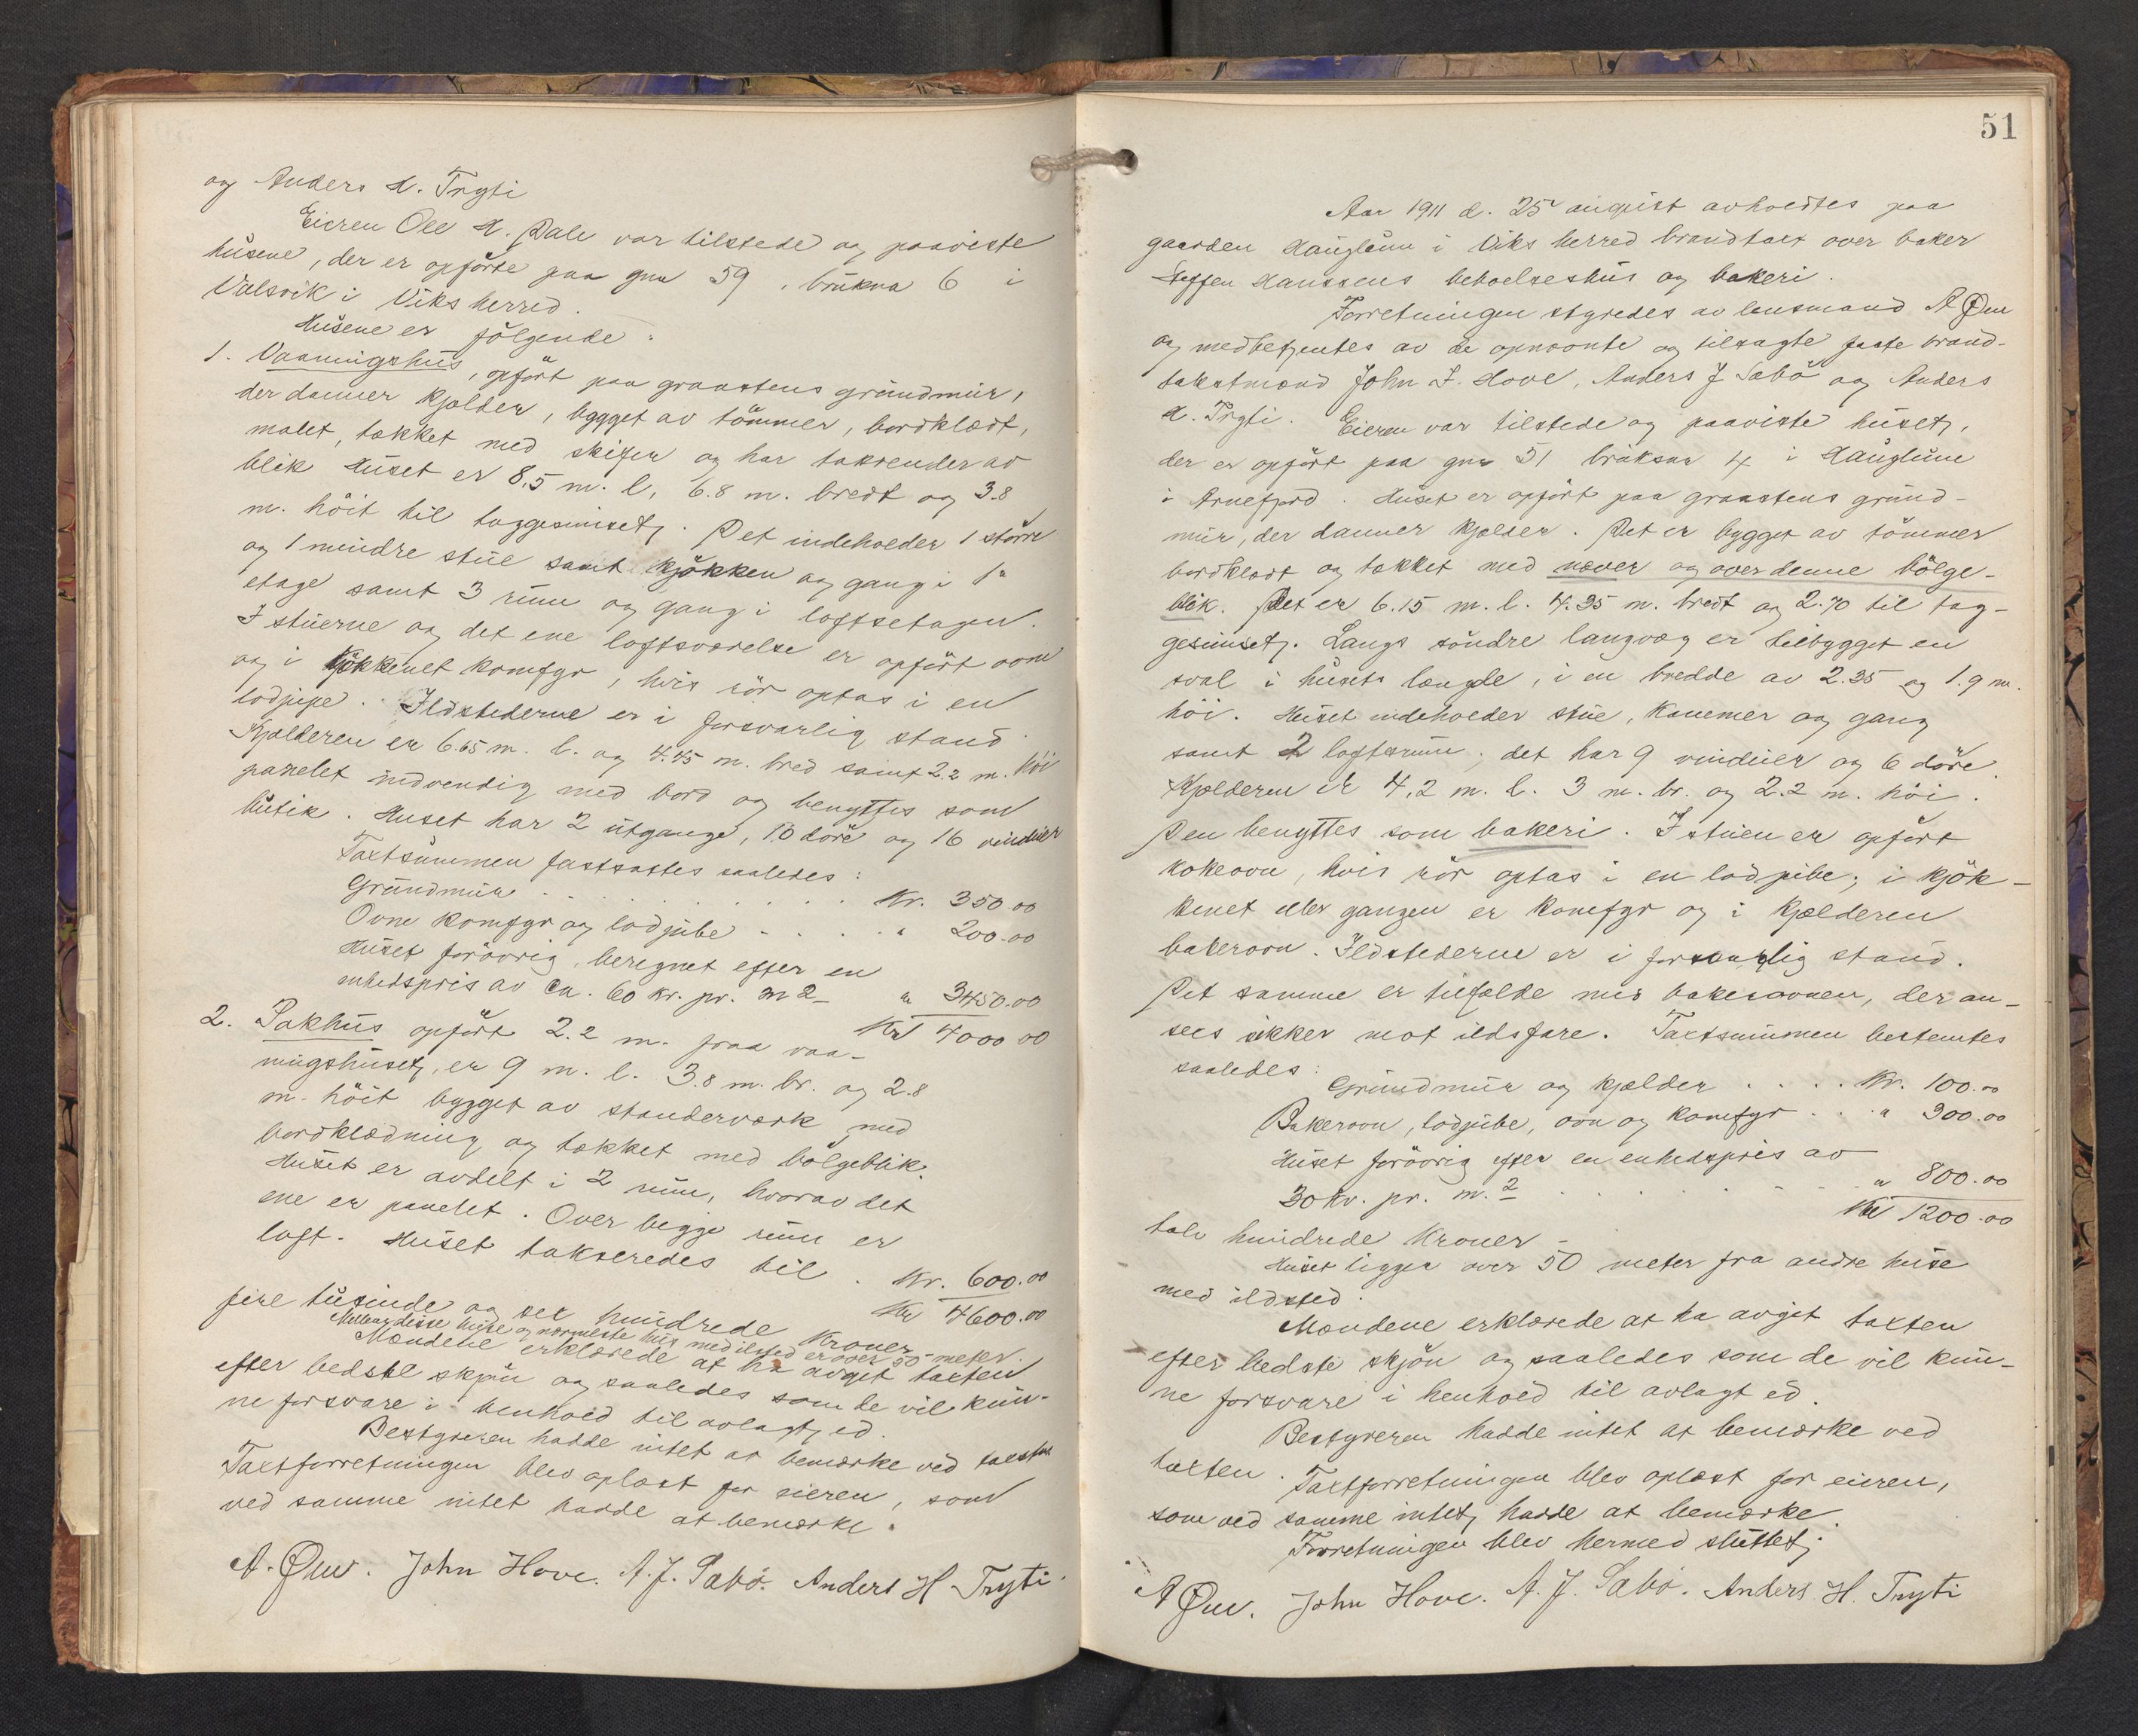 og Anders H. Tryti
Eieren Ole H. Dale var tilstede og paaviste
husene, der er opførte paa gnr 59, bruksnr 6 i
Valsvik i Viks herred.
Husene er følgende:
1. Vaaningshus, opført paa graastens grundmur,
der danner kjælder, bygget av tømmer, bordklædt,
malet, tækket med skifer og har takrender av
blik Huset er 8.5 m. l, 6.8 m. bredt og 3.8
m. höit til taggesimset. Det indeholder 1 större
og 1 mindre stue samt kjøkken og gang i 1ste
etage samt 3 rum og gang i loftsetagen.
I stuerne og det ene loftsværelse er opført ovne
og i kjøkkenet komfyr, hvis rör optas i en
lodpipe. Ildstederne er i forsvarlig stand.
Kjælderen er 6.65 m. l. og 4.45 m. bred samt 2.2 m. höi
panelet indvendig med bord og benyttes som
butik. Huset har 2 utgange, 10 döre og 16 vinduer
Taxtsummen fastsattes saaledes:
Grundmur . . . . . Kr. 350.00
Ovne komfyr og lodpibe . . . . " 200.00
Huset forövrig, beregnet efter en
enhedspris av ca. 60 kr. pr. m 2 - " 3450.00
Kr 4000 00
2. Pakhus opført 2.2 m. fraa vaa-
ningshuset, er 9 m. l. 3.8 m. br. og 2.8
m. höit bygget av standerværk med
bordklædning og tækket med bölgeblik.
Huset er avdelt i 2 rum, hvorav det
ene er panelet. Over begge rum er
loft. Huset takseredes til . Kr. 600.00
Kr 4600.00
fire tusinde og sex hundrede Kroner
Mellem disse huse og nærmeste hus med ildsted er over 50 meter.
Mændene erklærede at ha avgit taxten
efter bedste skjøn og saaledes som de vil kun-
ne forsvare i henhold til avlagt ed.
Bestyreren hadde intet at bemærke ved taxten
Taxtforretningen blev oplæst for eieren, som
ved samme intet hadde at bemærke.
A. Øren. John Hove. A. J. Sabø. Anders H Tryti.
51
Aar 1911 d. 25de august avholdtes paa
gaarden Hauglum i Viks herred brandtaxt over baker
Steffen Hanssens beboelseshus og bakeri.
Forretningen styredes av lensmand A Øren
og medbetjentes av de opnævnte og tilsagte faste brand-
takstmænd John I. Hove, Anders J Sabö og Anders
H. Tryti. Eieren var tilstede og paaviste huset,
der er opført paa gnr 51 bruksnr 4 i Hauglum
i Arnefjord. Huset er opført paa graastens grund-
mur, der danner kjælder. Det er bygget av tömmer
bordklædt og tækket med næver og over denne bölge-
blik. Det er 6.15 m. l. 4.35 m. bredt og 2.70 til tag-
gesimset. Langs söndre langvæg er tilbygget en
sval i husets længde, i en bredde av 2.35 og 1.9 m.
höi. Huset indeholder stue, kammer og gang
samt 2 loftsrum; det har 9 vinduer og 6 döre.
Kjælderen er 4,2 m. l. 3 m. br. og 2.2 m. höi.
Den benyttes som bakeri. I stuen er opført
kokeovn, hvis rör optas i en lodpibe; i kjök-
kenet eller gangen er komfyr og i kjælderen
bakerovn. Ildstederne er i forsvarlig stand.
Det samme er tilfælde med bakerovnen, der an-
sees sikker mot ildsfare. Taxtsummen bestemtes
saaledes:
Grundmur og kjælder . . . . Kr. 100.00
Bakerovn, lodpibe, ovn og komfyr . . " 300.00
Huset forövrig efter en enhedspris av
30 Kr. pr. m.2 . . . . . . " 800.00
Kr 1200.00
tolv hundrede Kroner -
Huset ligger over 50 meter fra andre huse
med ildsted.
Mændene erklærede at ha avgit taxten
efter bedste skjön og saaledes som de vil kun-
ne forsvare i henhold til avlagt ed.
Bestyreren hadde intet at bemærke ved
taxten. Taxtforretningen blev oplæst for eieren,
som ved samme intet hadde at bemærke.
Forretningen blev hermed sluttet.
A Øren. John Hove. A. J. Sabø. Anders H. Tryti